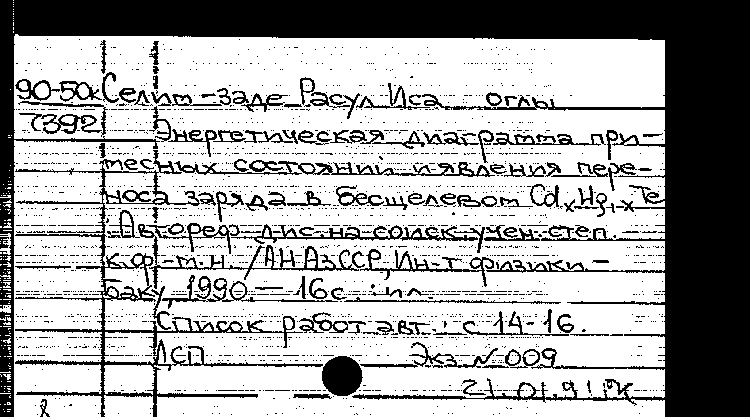 90-50к Селим-заде Расул Иса оглы
7392
Энергетическая диаграмма при-
месных состояний и явления пере-
носа заряда в бесщелевом CdₓHg₁₋ₓTe
: Автореф дис. на соиск. учен. степ.
к.ф.-м.н. /АН АзССР, Ин-т физики. -
Баку, 1990. — 16 с. : ил.
Список работ авт.: с 14-16.
ДСП Экз N 009
21.01.91